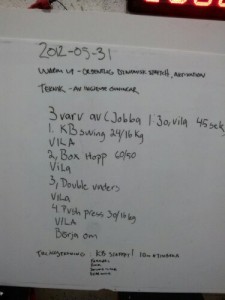 2012-05-31
WARM UP - ORDENTLIG DYNAMISK STRETCH, AKTIVATION
TEKNIK - AV INGÅENDE ÖVNINGAR
3 varv av (Jobba 1:30, vila 45 sek
1. KB swing 24/16kg
VILA
2, Box Hopp 60/50
VILA
3, Double unders
VILA
4. Push press 30/16kg
VILA
Börja om
KB